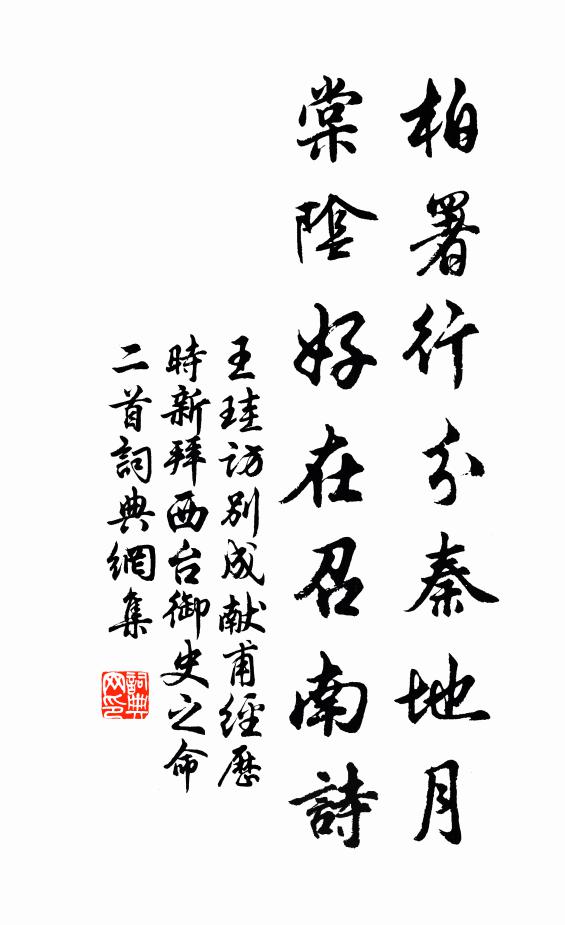 柏署行分秦地月
棠陰好在召南詩
王珪訪別成献甫經歷
時新拜西台御史之命
二首詞典網集
詞典网印